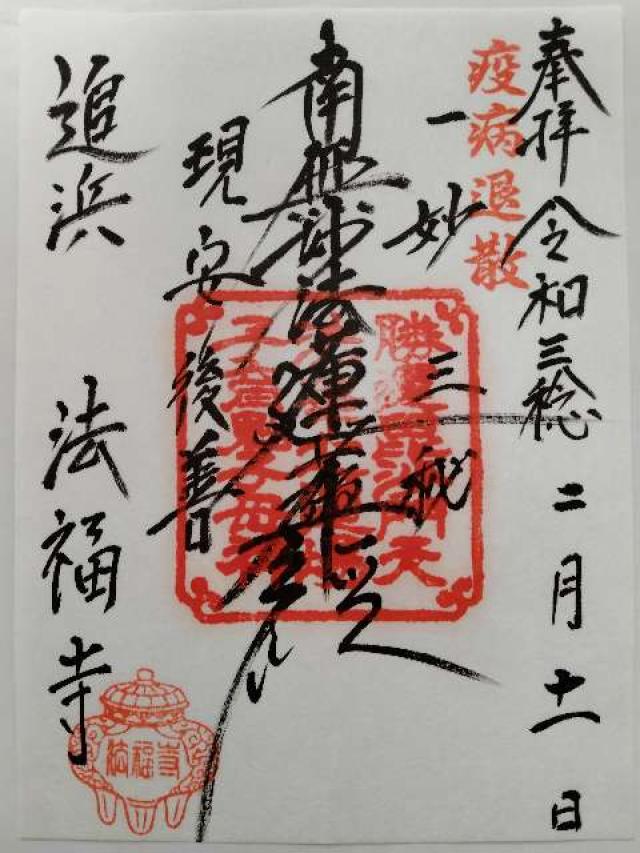 奉拝 令和三稔 二月十一日
疫病退散
一妙三秘
南無妙法蓮華経
現安後善
追浜 法福寺
法福寺